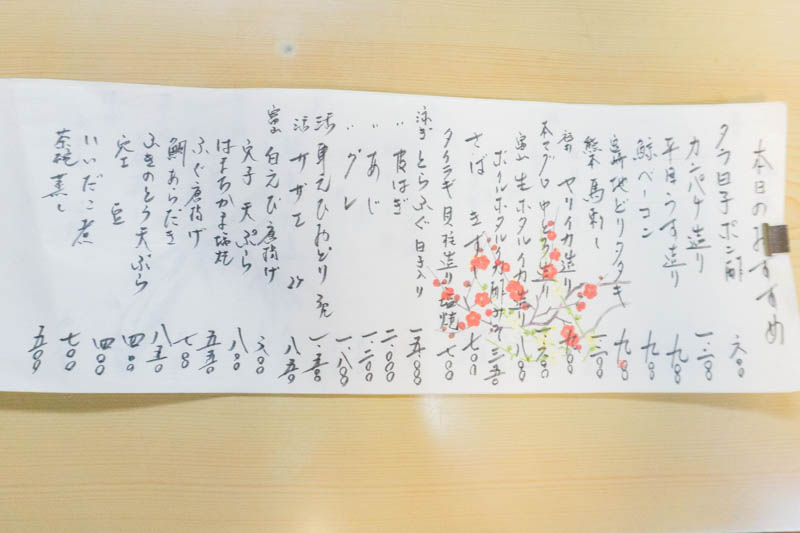 本日のおすすめ
タラ白子ポン酢 六〇〇
カンパチ造り 一、二〇〇
平目うす造り 九〇〇
鯨ベーコン 九〇〇
宮崎地どりタタキ 九〇〇
熊本馬刺し
ヤリイカ造り 九〇〇
本マグロ中とろ造り
富山生ホタルイカ造り
ボイルホタルイカ酢みそ 六五〇
さばきずし 七〇〇
タイラギ貝柱造り 塩焼 七〇〇
泳ぎとらふぐ白子入り
〃 皮はぎ 二、〇〇〇
〃 あじ 一、二〇〇
〃 グレ 一、八〇〇
活車えびおどり
活サザエ 八五〇
富山白えび唐揚げ 六〇〇
穴子天ぷら 八〇〇
はまちかま塩焼 五五〇
ふぐ唐揚げ 七〇〇
鯛あらだき 八五〇
ふきのとう天ぷら 四五〇
空豆 四〇〇
いいだこ煮 七〇〇
茶碗蒸し 五〇〇